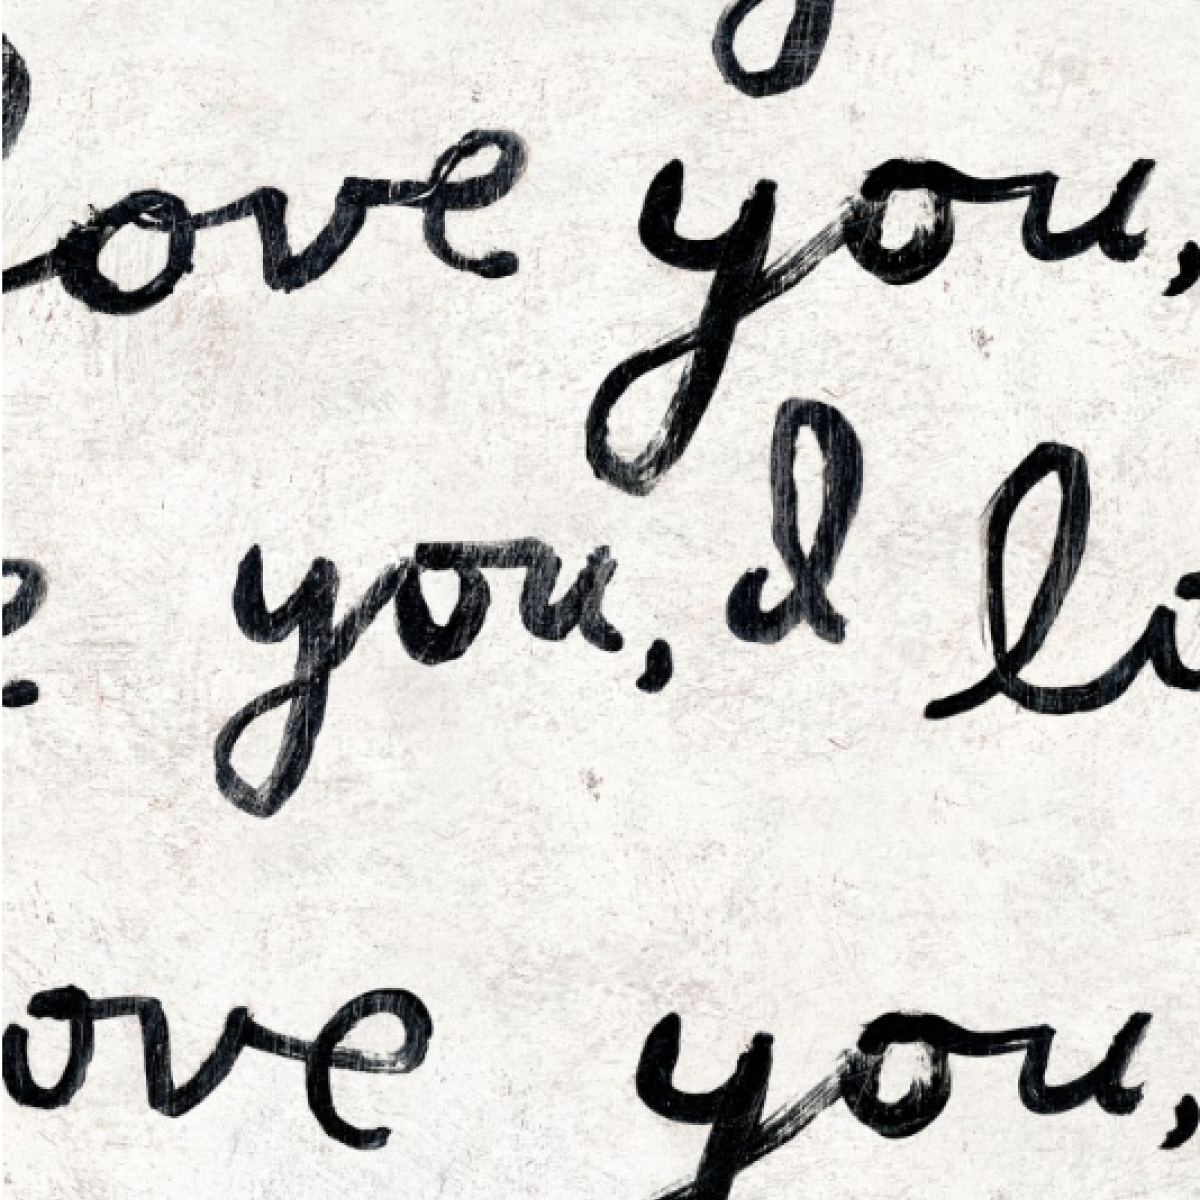 ove you,
e you, I li
ove you,